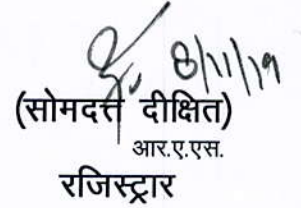 8/11/19
(सोमदत्त दीक्षित)
आर.ए.एस.
रजिस्ट्रार